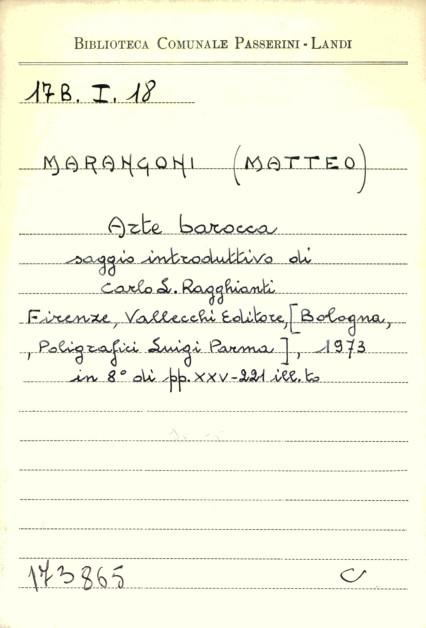 BIBLIOTECA COMUNALE PASSERINI - LANDI
17B. I. 18
MARANGONI (MATTEO)
Arte barocca
saggio introduttivo di
Carlo L. Ragghianti
Firenze, Vallecchi Editore, [Bologna,
, Poligrafici Luigi Parma], 1973
in 8° di pp. XXV-221 ill.to
173865 C